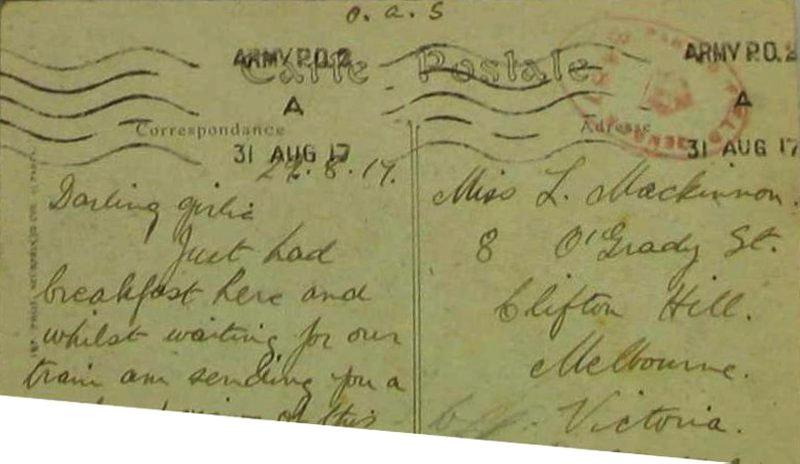 O. A. S
ARMY P.O. 2
A
31 AUG 17
ARMY P.O. 2
A
31 AUG 17
Carte Postale
Correspondance
Adresse
.8.17.
Darling girlie
Just had
breakfast here and
whilst waiting for our
train am sending you a
of this
Miss L. Mackinnon.
8 O'Grady St.
Clifton Hill.
Melbourne.
Victoria.